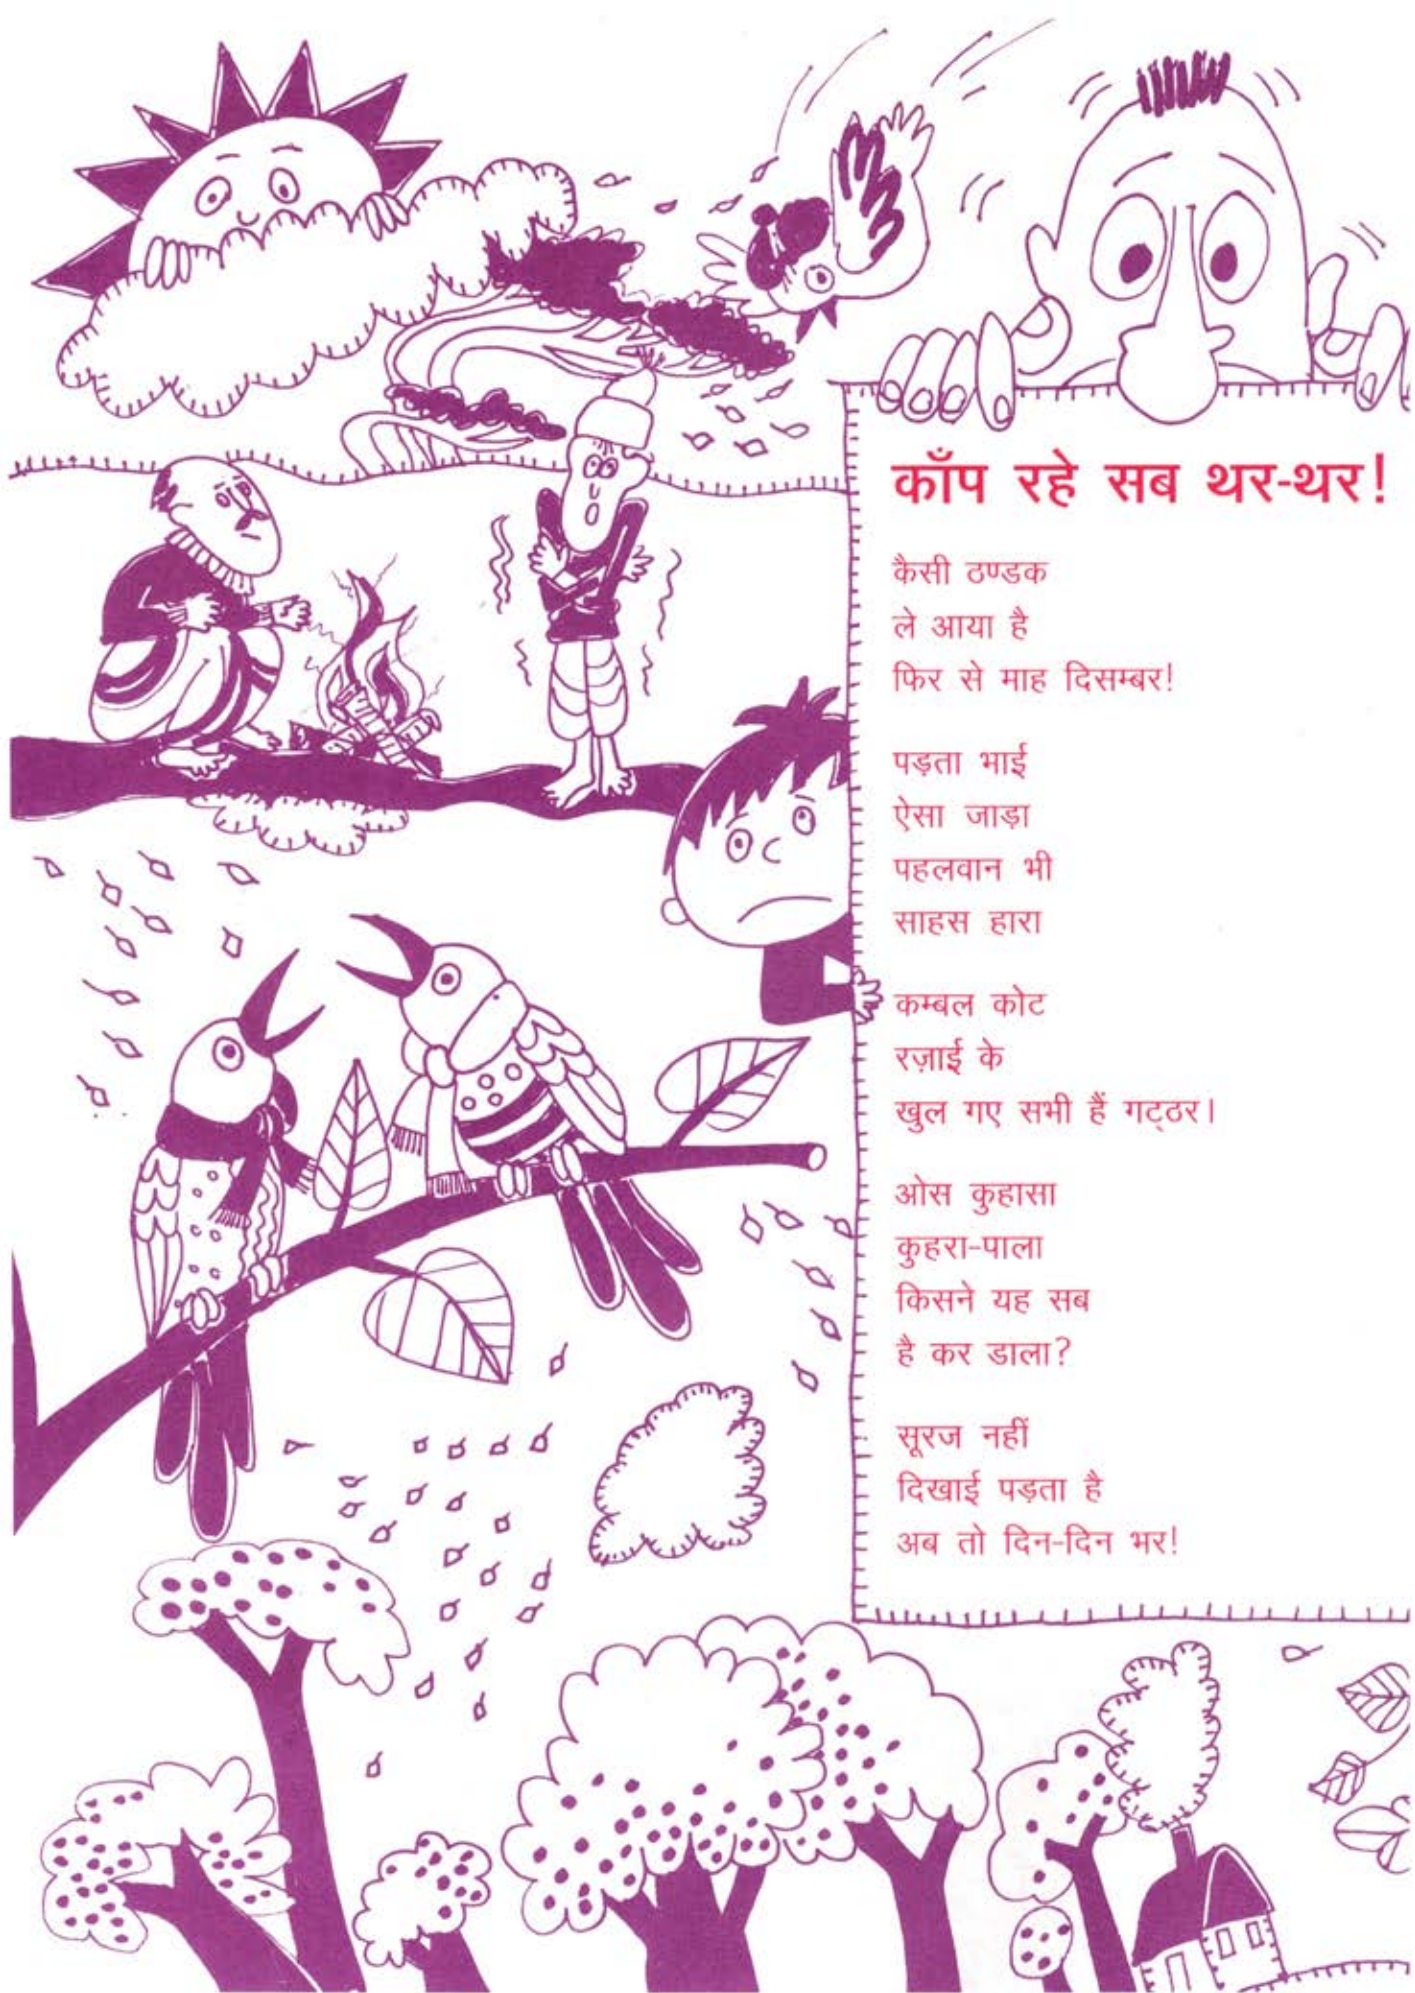 काँप रहे सब थर-थर!
कैसी ठण्डक
ले आया है
फिर से माह दिसम्बर!
पड़ता भाई
ऐसा जाड़ा
पहलवान भी
साहस हारा
कम्बल कोट
रज़ाई के
खुल गए सभी हैं गट्ठर।
ओस कुहासा
कुहरा-पाला
किसने यह सब
है कर डाला?
सूरज नहीं
दिखाई पड़ता है
अब तो दिन-दिन भर!